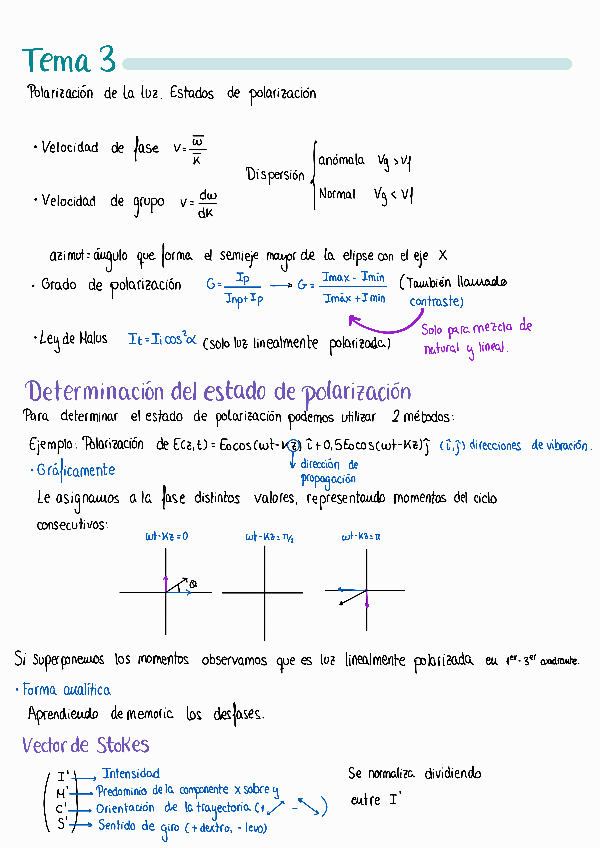 Tema 3
Polarización de la luz. Estados de polarización
· Velocidad de fase v = ω̅/k̅
Dispersión { anómala Vg > Vf
Normal Vg < Vf
· Velocidad de grupo v = dω/dk
azimut = ángulo que forma el semieje mayor de la elipse con el eje X
· Grado de polarización G = Ip/(Inp + Ip) → G = (Imax - Imin)/(Imáx + Imin) (También llamado contraste)
Solo para mezcla de natural y lineal.
· Ley de Malus It = Ii cos²α (solo luz linealmente polarizada)
Determinación del estado de polarización
Para determinar el estado de polarización podemos utilizar 2 métodos:
Ejemplo: Polarización de E(z,t) = E₀cos(ωt-kz) î + 0,5E₀cos(ωt-kz) ĵ (î,ĵ) direcciones de vibración.
↓ dirección de propagación
· Gráficamente
Le asignamos a la fase distintos valores, representando momentos del ciclo
consecutivos:
ωt-kz=0 ωt-kz=π/2 ωt-kz=π
Si superponemos los momentos observamos que es luz linealmente polarizada en 1er-3er cuadrante.
· Forma analítica
Aprendiendo de memoria los desfases.
Vector de Stokes
I' → Intensidad
M' → Predominio de la componente x sobre y
C' → Orientación de la trayectoria (+ ↗ - ↘)
S' → Sentido de giro (+ dextro, - levo)
Se normaliza dividiendo
entre I'